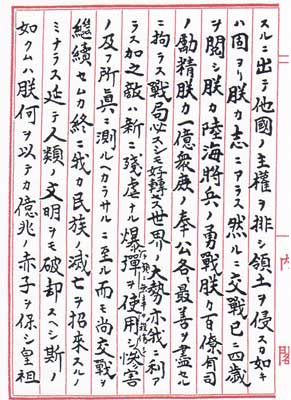 スルニ出テ他國ノ主權ヲ排シ領土ヲ侵スカ如キ
ハ固ヨリ朕カ志ニアラス然ルニ交戰已ニ四歳
ヲ閲シ朕カ陸海將兵ノ勇戰朕カ百僚有司
ノ勵精朕カ一億衆庶ノ奉公各最善ヲ盡セル
ニ拘ラス戰局必スシモ好轉セス世界ノ大勢亦我ニ利ア
ラス加之敵ハ新ニ殘虐ナル爆彈ヲ使用シテ頻ニ無辜ヲ殺傷シ慘害
ノ及フ所眞ニ測ルヘカラサルニ至ル而モ尚交戰ヲ
繼續セムカ終ニ我カ民族ノ滅亡ヲ招來スルノ
ミナラス延テ人類ノ文明ヲモ破却スヘシ斯ノ
如クムハ朕何ヲ以テカ億兆ノ赤子ヲ保シ皇祖
内閣